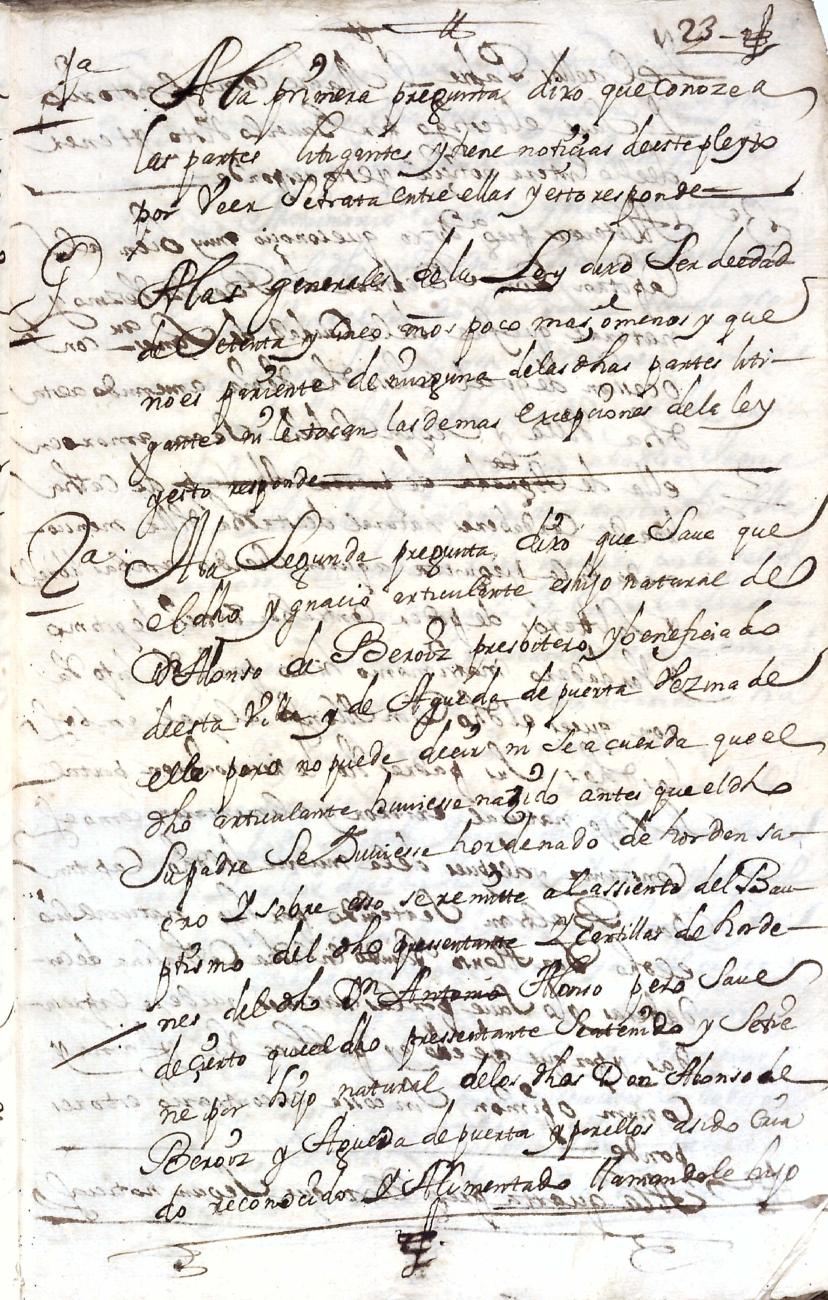 23
1a
A la primera pregunta dixo que Conoze a
las partes litigantes y tiene noticias de este pleyto
por Veer Se trata entre ellas y esto responde
A las generales de la Ley dixo Ser de edad
de Setenta y cinco años poco mas o menos y que
no es pariente de ninguna de las dhas partes liti-
gantes ni le tocan las demas excepciones de la ley
y esto responde
2a
A la Segunda pregunta dixo que Save que
el dho Ygnacio articulante es hijo natural de
Dn Alonso de Beroiz presbitero y beneficiado
de esta Villa y de Agueda de puerta Vezina de
ella pero no puede decir ni Se acuerda que el
dho articulante huviesse nazido antes que el dho
Su padre Se huviesse hordenado de horden sa-
cro Y sobre eso se remitte al assiento del Bau-
ptismo del dho pressentante Y Cartillas de horde-
nes del dho Dn Antonio Alonso pero Save
de çierto que el dho pressentante Se a tenido y Se tie
ne por hijo natural de los dhos Don Alonso de
Beroiz y Agueda de puerta y por ellos a sido Cria
do reconocido Y Alimentado llamandole hijo